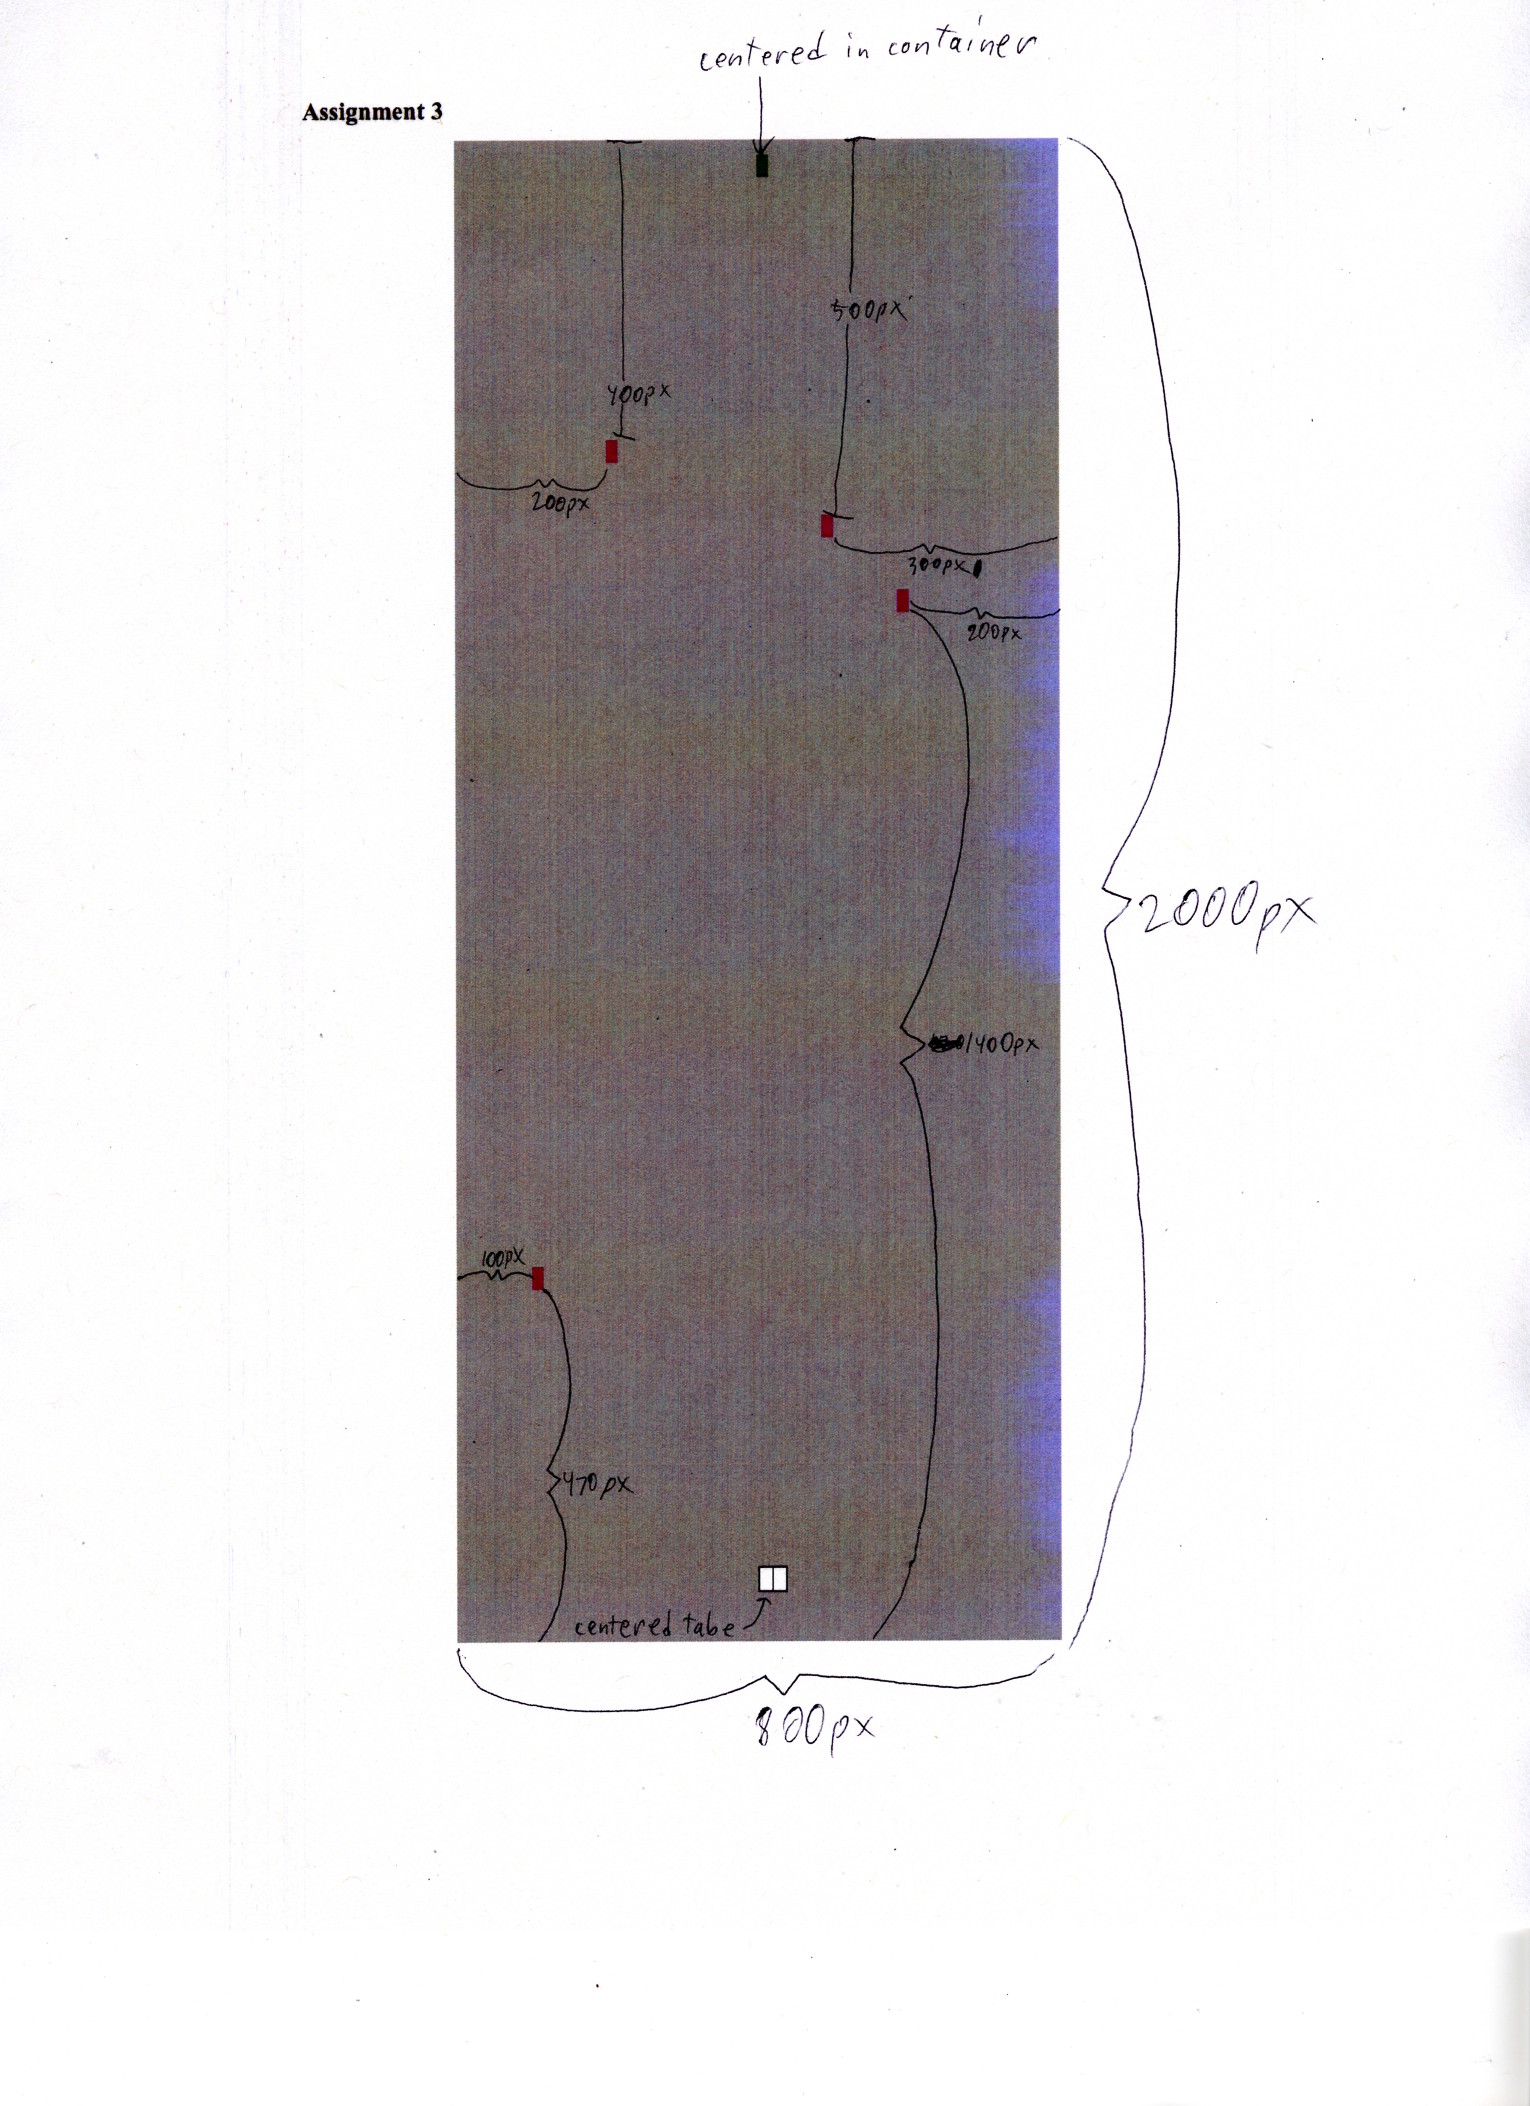 centered in container
Assignment 3
500px
400px
200px
300px
200px
2000px
1400px
100px
470px
centered tabe
800px